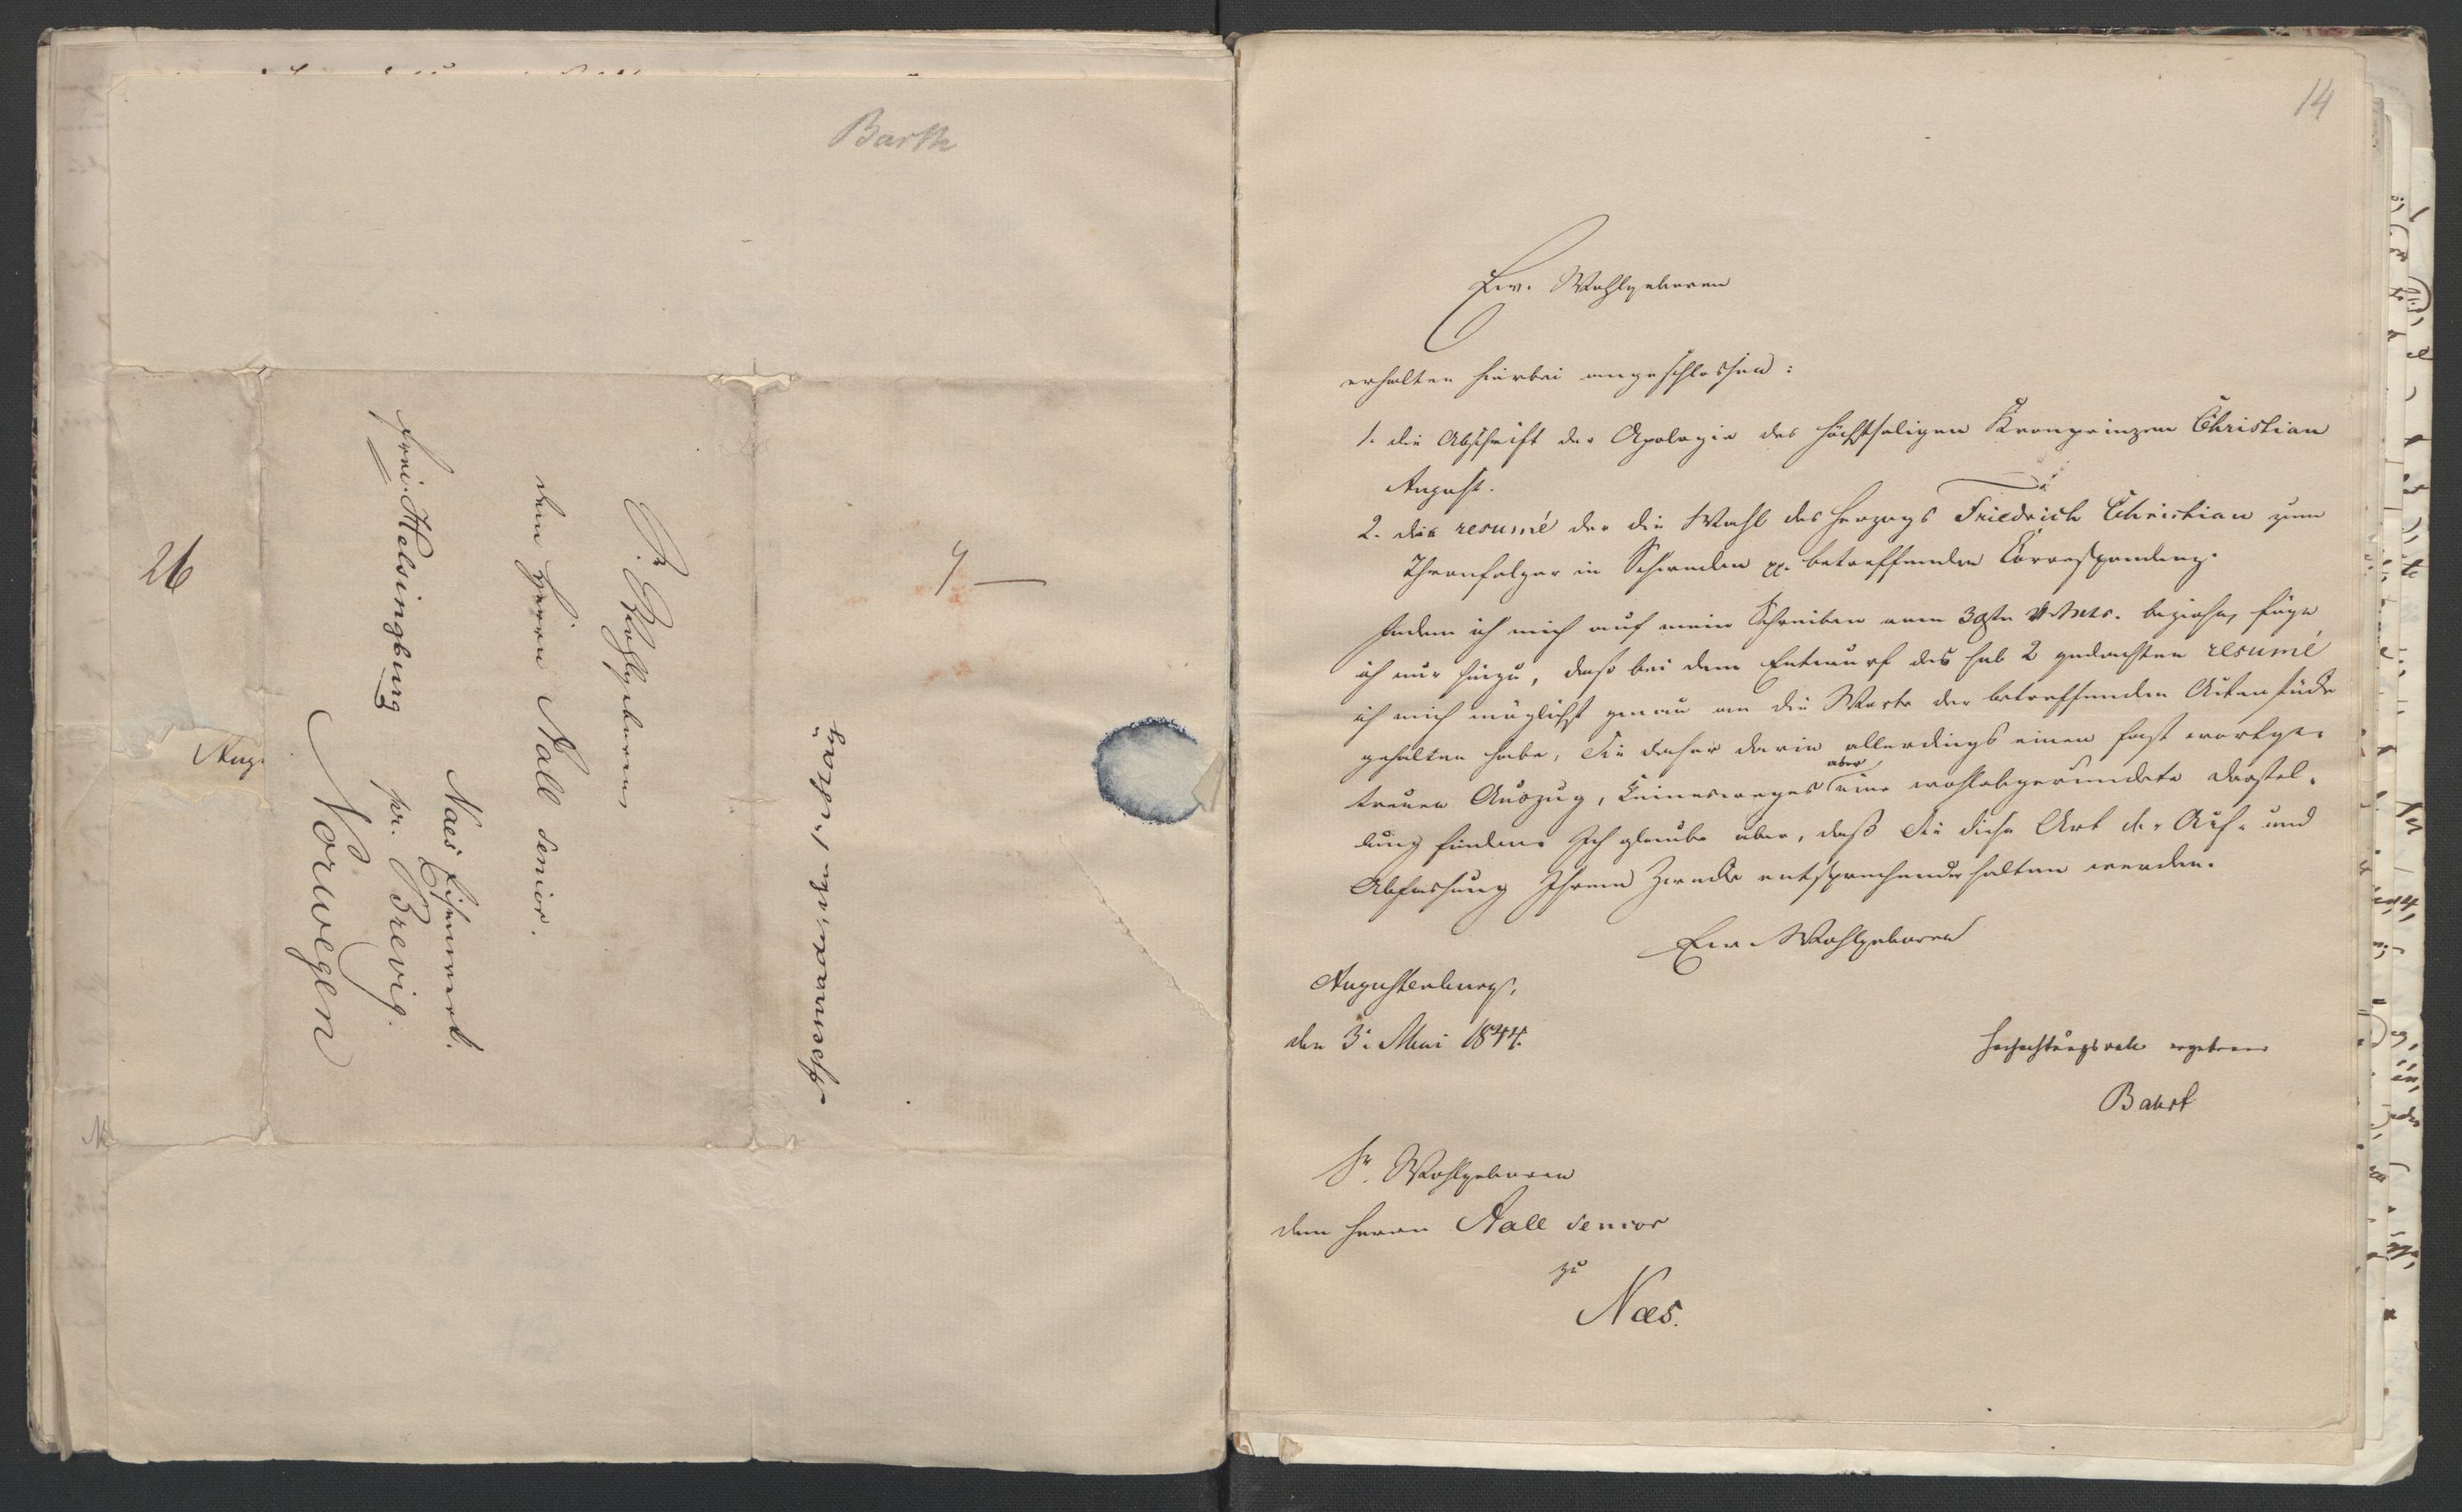 Barth
Sr. Wohlgeboren
dem Herrn Aall senior.
Naes Eisenwerk.
pr. Brevig.
frei. Helsingburg
Norwegen
26
Aug
14
Ew. Wohlgeboren
erhalten hierbei angeschlossen:
1. die Abschrift der Apologie des höchstseligen Kronprinzen Christian
August.
2. das resumé der die Wahl des Herzogs Friedrich Christian zum
Thronfolger in Schweden pp. betreffenden Correspondenz.
Indem ich mich auf mein Schreiben vom 30sten v. Mts. beziehe, füge
ich nur hinzu, daß bei dem Entwurf des sub 2 gedachten resumé
ich mich möglichst genau an die Worte der betreffenden Actenstücke
gehalten habe, Sie daher darin allerdings einen fast wortge-
treuen Auszug, keinesweges aber eine wohlabgerundete Darstel-
lung finden. Ich glaube aber, daß Sie diese Art der Auf- und
Abfassung Ihrem Zwecke entsprechender halten werden.
Ew. Wohlgeboren
Augustenburg,
den 3. Mai 1844.
hochachtungsvoll ergebener
Sr. Wohlgeboren
dem Herrn Aall senior
zu
Næs.